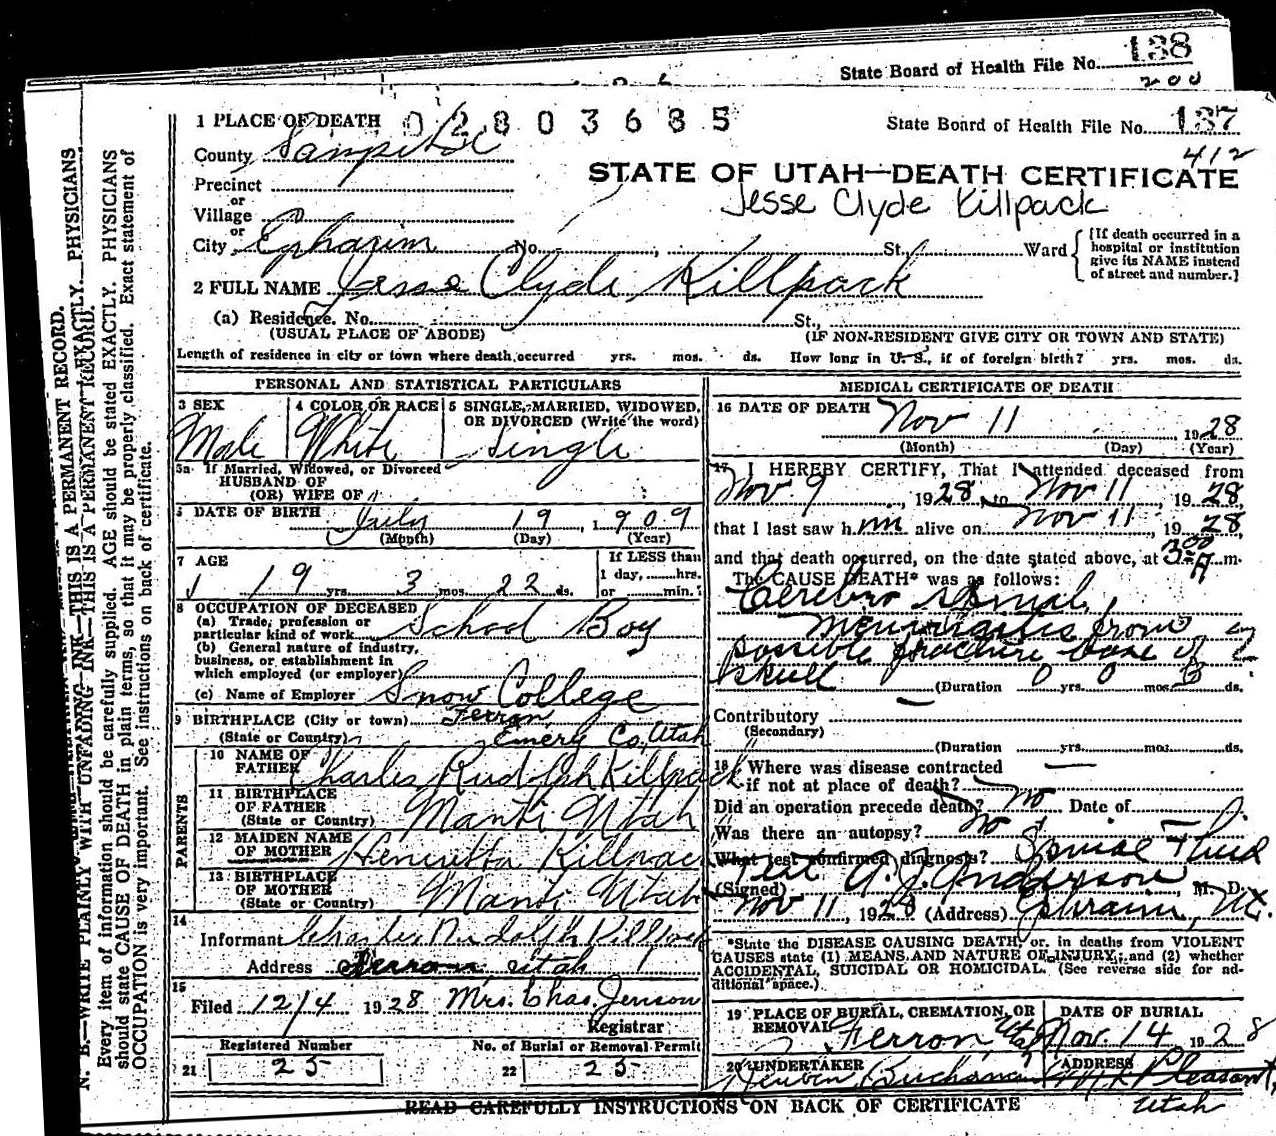 State Board of Health File No. 138
200
1 PLACE OF DEATH 02803685
State Board of Health File No. 137
412
County Sanpete
STATE OF UTAH—DEATH CERTIFICATE
Precinct
or
Jesse Clyde Killpack
Village
or
City Ephraim No. St. Ward
[If death occurred in a
hospital or institution
give its NAME instead
of street and number.]
2 FULL NAME Jesse Clyde Killpack
(a) Residence. No. St.,
(USUAL PLACE OF ABODE) (IF NON-RESIDENT GIVE CITY OR TOWN AND STATE)
Length of residence in city or town where death occurred yrs. mos. ds. How long in U. S., if of foreign birth? yrs. mos. ds.
PERSONAL AND STATISTICAL PARTICULARS
3 SEX Male
4 COLOR OR RACE White
5 SINGLE, MARRIED, WIDOWED,
OR DIVORCED (Write the word)
Single
5a If Married, Widowed, or Divorced
HUSBAND OF
(OR) WIFE OF
DATE OF BIRTH July 19, 1909
(Month) (Day) (Year)
7 AGE
19 yrs. 3 mos. 22 ds.
If LESS than
1 day, hrs.
or min.?
8 OCCUPATION OF DECEASED
(a) Trade, profession or
particular kind of work School Boy
(b) General nature of industry,
business, or establishment in
which employed (or employer)
(c) Name of Employer Snow College
9 BIRTHPLACE (City or town) Ferron,
(State or Country) Emery Co, Utah
PARENTS
10 NAME OF
FATHER Charles Rudolph Killpack
11 BIRTHPLACE
OF FATHER
(State or Country) Manti Utah
12 MAIDEN NAME
OF MOTHER Henrietta Killpack
13 BIRTHPLACE
OF MOTHER
(State or Country) Manti Utah
14
Informant Charles Rudolph Killpack
Address Ferron Utah
15
Filed 12/4 1928 Mrs. Chas. Jenson
Registrar
Registered Number
21 25
No. of Burial or Removal Permit
22 25
MEDICAL CERTIFICATE OF DEATH
16 DATE OF DEATH Nov 11, 1928
(Month) (Day) (Year)
17 I HEREBY CERTIFY, That I attended deceased from
Nov. 9, 1928, to Nov 11, 1928
that I last saw him alive on Nov 11, 1928,
and that death occurred, on the date stated above, at 3:00 A m.
The CAUSE DEATH* was as follows:
Cerebro Spinal,
Meningitis from
possible fracture base of
skull
(Duration 0 yrs. 0 mos. 3 ds.
Contributory
(Secondary)
(Duration yrs. mos. ds.
18 Where was disease contracted
if not at place of death?
Did an operation precede death? no Date of
Was there an autopsy? no
What test confirmed diagnosis? Spinal Fluid
Test
(Signed) A. J. Anderson, M. D.
Nov 11, 1928 (Address) Ephraim, Ut.
*State the DISEASE CAUSING DEATH, or, in deaths from VIOLENT
CAUSES state (1) MEANS AND NATURE OF INJURY; and (2) whether
ACCIDENTAL, SUICIDAL OR HOMICIDAL. (See reverse side for ad-
ditional space.)
19 PLACE OF BURIAL, CREMATION, OR
REMOVAL Ferron, Utah
DATE OF BURIAL
Nov. 14 1928
20 UNDERTAKER
Reuben Buchanan
ADDRESS
Mt. Pleasant,
Utah
READ CAREFULLY INSTRUCTIONS ON BACK OF CERTIFICATE
N. B.—WRITE PLAINLY WITH UNFADING INK—THIS IS A PERMANENT RECORD.
Every item of information should be carefully supplied. AGE should be stated EXACTLY. PHYSICIANS
should state CAUSE OF DEATH in plain terms, so that it may be properly classified. Exact statement of
OCCUPATION is very important. See instructions on back of certificate.